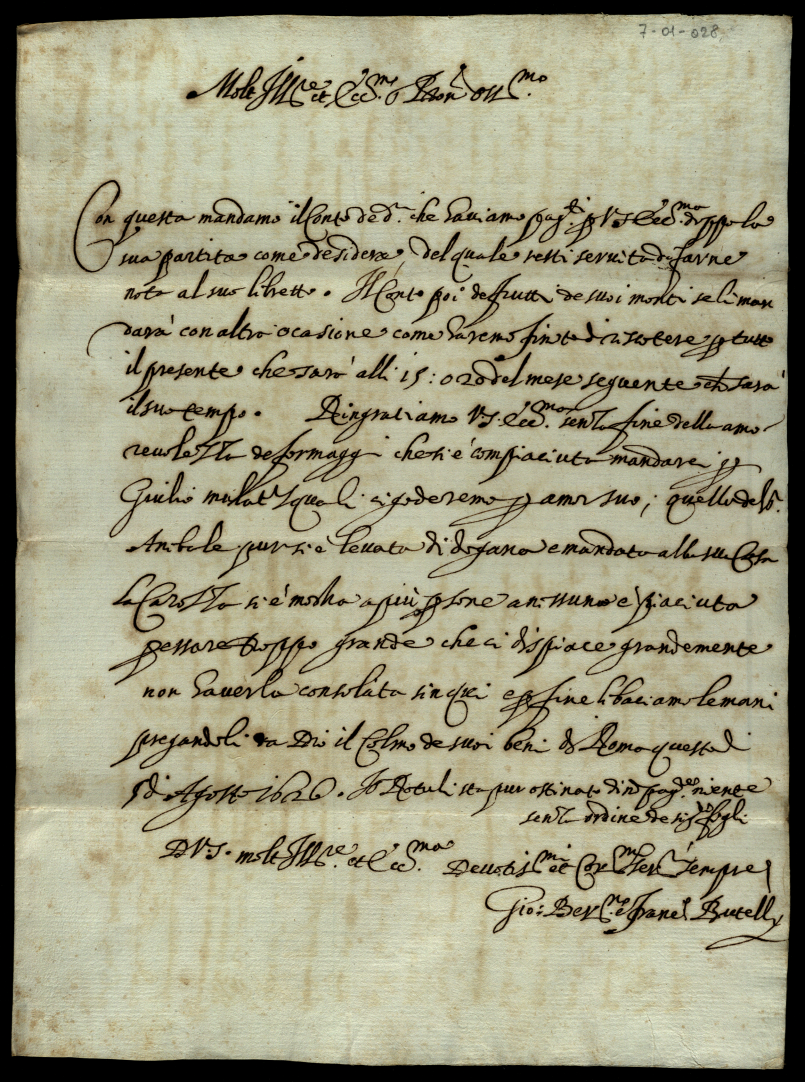 7-01-028
Molt Ill.re et Ecc.mo Pron oss.mo
Con questa mandamo il Conto de d. che haviamo pag.ti p VS Ecc.ma doppo la
sua partita come desidera, del quale resti servita di farne
nota al suo libretto. Il Conto poi de frutti de suoi monti se li man
darà con altra ocasione come haremo finito di riscotere p tutto
il presente che sarà alli 15: o 20 del mese seguente ch sarà
il suo tempo. Ringratiamo VS. Ecc.ma senza fine della amo-
revolezza de formaggi che si è compiaciuta mandarci p
Giulio mulat. quali ci goderemo p amor suo, quello del S.
Anibale pur si è levata di dogana e mandata alla sua Casa
la Carozza si è mostra a più psone a nissuna è piaciuta
p essare troppo grande che ci dispiace grandemente
non haverla consolata sin qui e p fine li baciamo le mani
pregandoli da Dio il Colmo de suoi beni di Roma questo dì
5 di Agosto 1626. Il Rotuli sta pur ostinato di no pagar niente
senza ordine de sig.ri fogli
D VS. molt Ill.re et Ecc.ma Devotis.mi et Cor.mi Ser.ri sempre
Gio: Ber.no e Fran.o Butelly